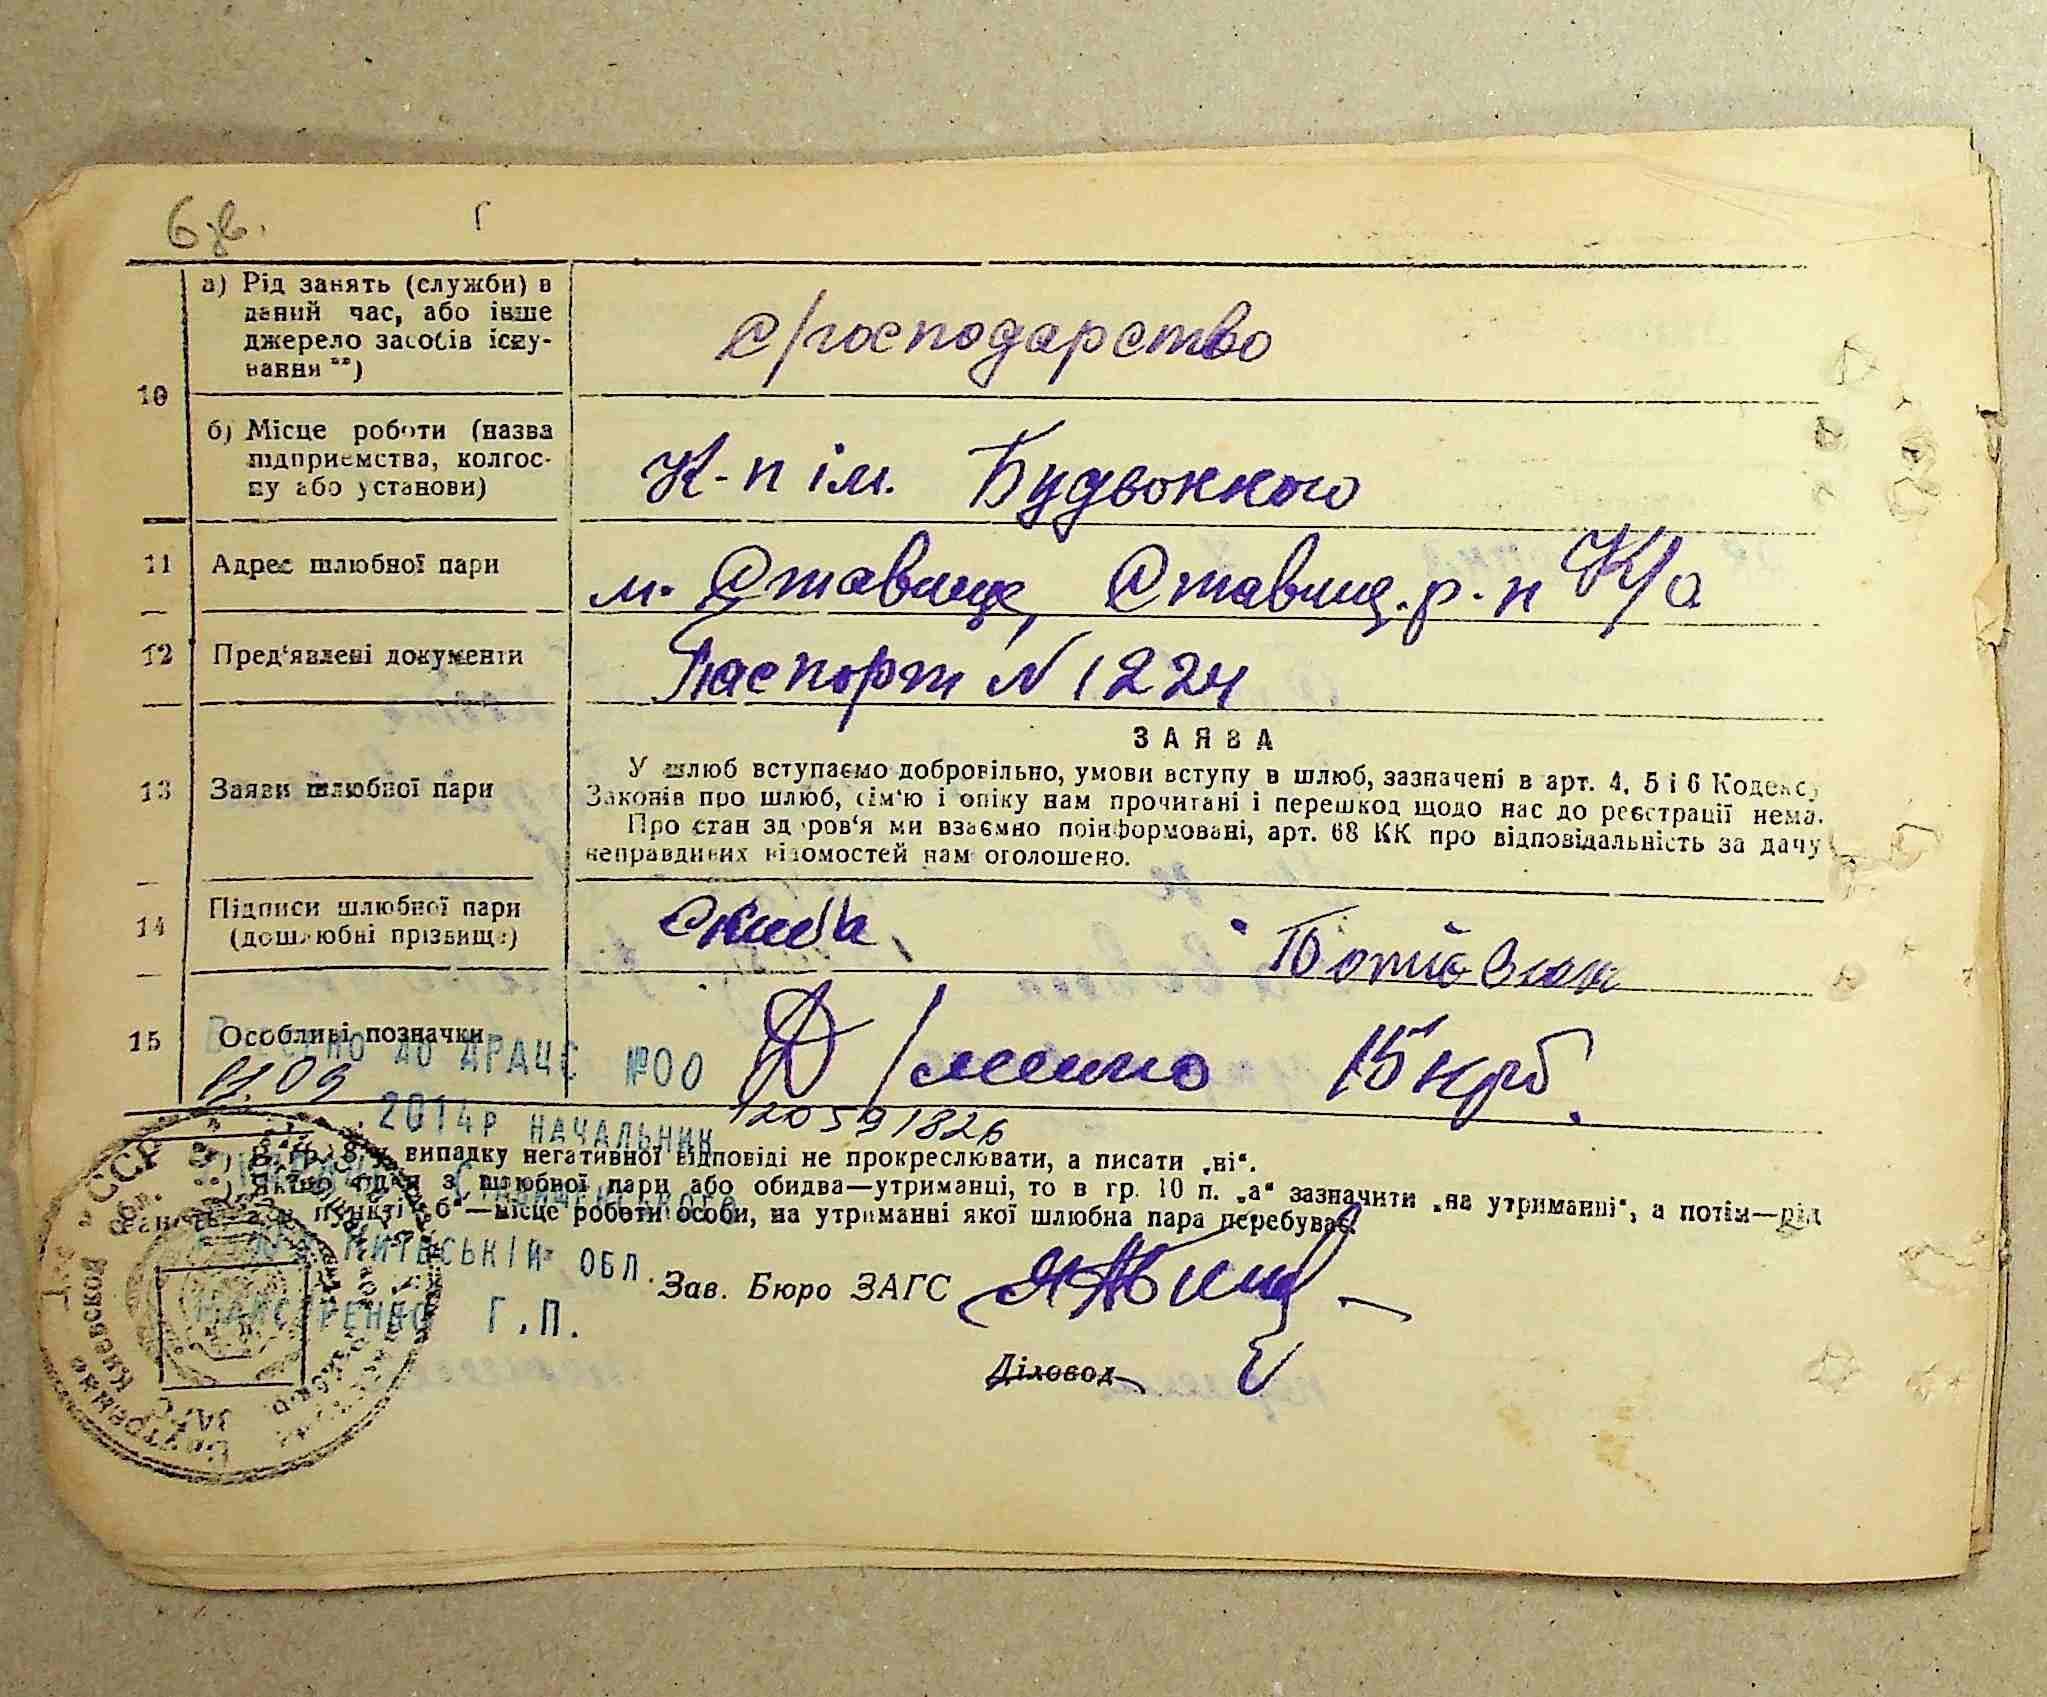 6 зв.
10
а) Рід занять (служби) в
даний час, або інше
джерело засобів існу-
вання **)
с/господарство
б) Місце роботи (назва
підприємства, колгос-
пу або установи)
К-п ім. Будьонного
11 Адрес шлюбної пари
м. Ставище, Ставищ. р-н К/о
12 Пред'явлені документи
Паспорт N 1224
13 Заяви шлюбної пари
ЗАЯВА
У шлюб вступаємо добровільно, умови вступу в шлюб, зазначені в арт. 4, 5 і 6 Кодексу
Законів про шлюб, сім'ю і опіку нам прочитані і перешкод щодо нас до реєстрації нема.
Про стан здоров'я ми взаємно поінформовані, арт. 68 КК про відповідальність за дачу
неправдивих відомостей нам оголошено.
14 Підписи шлюбної пари
(дошлюбні прізвища)
Скиба
15 Особливі позначки
15 крб.
ВНЕСЕНО ДО ДРАЦС №00 120591826
11.09. 2014р НАЧАЛЬНИК
*) В гр. 8 у випадку негативної відповіді не прокреслювати, а писати „ні“.
**) Якщо один з шлюбної пари або обидва—утриманці, то в гр. 10 п. „а“ зазначити „на утриманні“, а потім—рід
занять, а в пункті „б“—місце роботи особи, на утриманні якої шлюбна пара перебуває.
КИЇВСЬКІЙ ОБЛ.
Г.П.
Зав. Бюро ЗАГС
Діловод